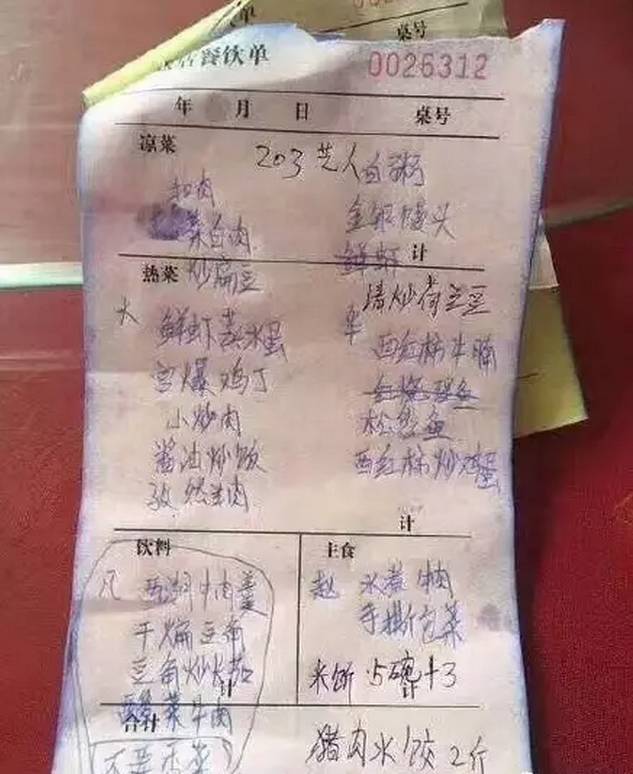 单
桌号
店餐饮单
0026312
年 月 日 桌号
凉菜
203艺人白粥
扣肉
金银馒头
菜白肉
鲜虾
计
炒扁豆
热菜
清炒荷兰豆
大
鲜虾蒸水蛋
西红柿牛腩
宫爆鸡丁
小炒肉
松鼠鱼
酱油炒饭
西红柿炒鸡蛋
孜然羊肉
计
饮料
主食
凡 西湖牛肉羹
赵 水煮牛肉
干煸豆角
手撕包菜
豆角炒大茄
计
米饭 5碗+3
计
酸菜牛肉
合计
不要香菜
猪肉水饺2斤